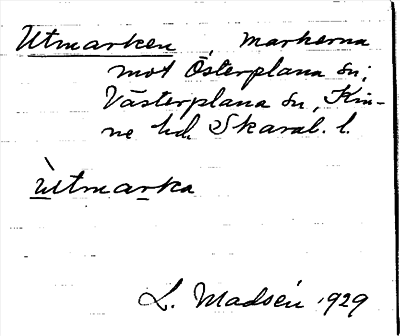 Utmarken, markerna
mot Österplana sn;
Västerplana sn, Kin-
ne hd. Skarab. l.
ùtmarka
L. Madsén 1929